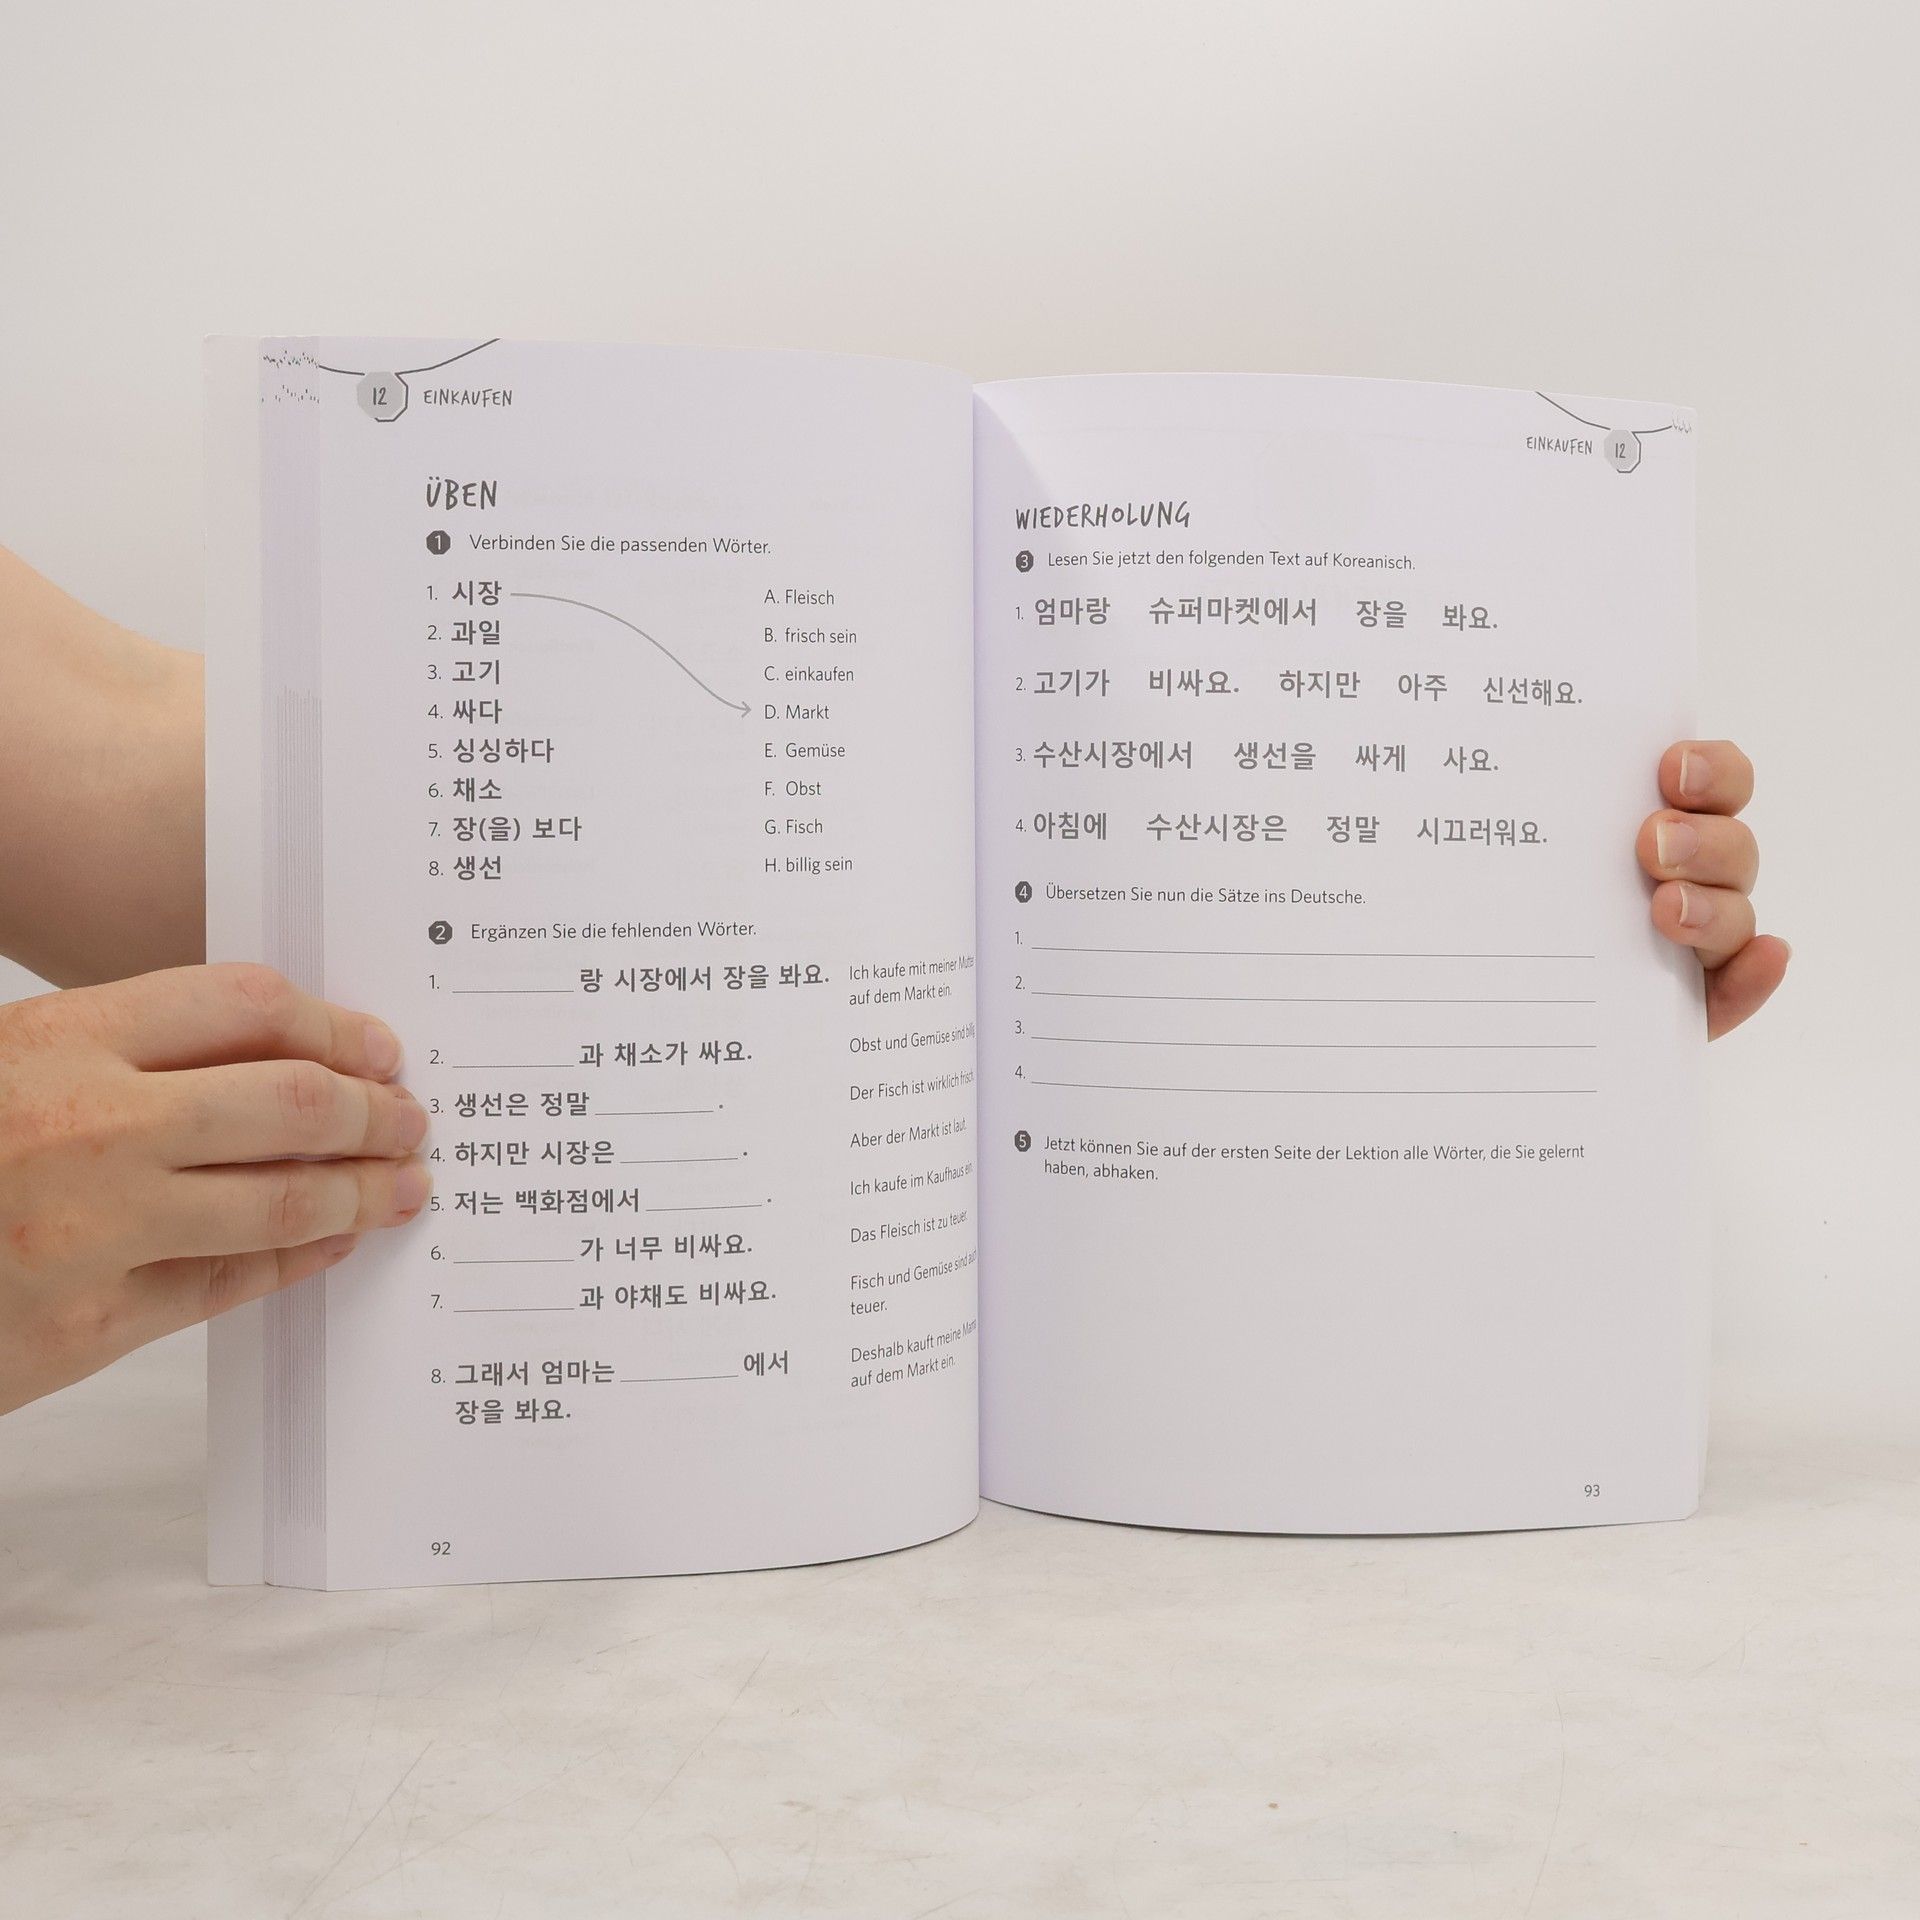 12 EINKAUFEN
ÜBEN
1 Verbinden Sie die passenden Wörter.
1. 시장
2. 과일
3. 고기
4. 싸다
5. 싱싱하다
6. 채소
7. 장(을) 보다
8. 생선
A. Fleisch
B. frisch sein
C. einkaufen
D. Markt
E. Gemüse
F. Obst
G. Fisch
H. billig sein
2 Ergänzen Sie die fehlenden Wörter.
1. ____________ 랑 시장에서 장을 봐요.
Ich kaufe mit meiner Mutter
auf dem Markt ein.
2. ____________ 과 채소가 싸요.
Obst und Gemüse sind billig.
3. 생선은 정말 ____________ .
Der Fisch ist wirklich frisch.
4. 하지만 시장은 ____________ .
Aber der Markt ist laut.
5. 저는 백화점에서 ____________ .
Ich kaufe im Kaufhaus ein.
6. ____________ 가 너무 비싸요.
Das Fleisch ist zu teuer.
7. ____________ 과 야채도 비싸요.
Fisch und Gemüse sind auch
teuer.
8. 그래서 엄마는 ____________ 에서
장을 봐요.
Deshalb kauft meine Mama
auf dem Markt ein.
92
EINKAUFEN 12
WIEDERHOLUNG
3 Lesen Sie jetzt den folgenden Text auf Koreanisch.
1. 엄마랑 슈퍼마켓에서 장을 봐요.
2. 고기가 비싸요. 하지만 아주 신선해요.
3. 수산시장에서 생선을 싸게 사요.
4. 아침에 수산시장은 정말 시끄러워요.
4 Übersetzen Sie nun die Sätze ins Deutsche.
1.
2.
3.
4.
5 Jetzt können Sie auf der ersten Seite der Lektion alle Wörter, die Sie gelernt
haben, abhaken.
93